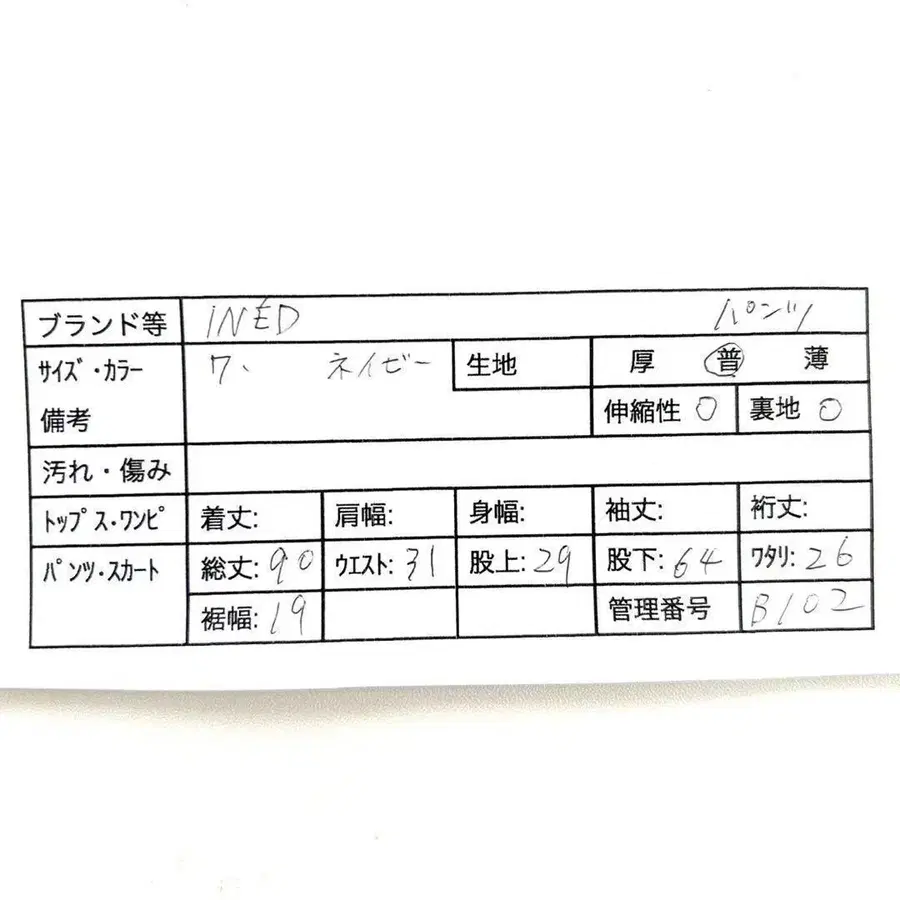 ブランド等 INED パンツ
サイズ・カラー 7、 ネイビー 生地 厚 普 薄
備考 伸縮性 〇 裏地 〇
汚れ・傷み
トップス・ワンピ 着丈: 肩幅: 身幅: 袖丈: 裄丈:
パンツ・スカート 総丈: 90 ウエスト: 31 股上: 29 股下: 64 ワタリ: 26
裾幅: 19 管理番号 B102